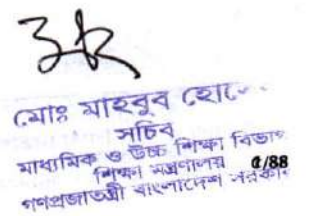 মোঃ মাহবুব হোসে
সচিব
মাধ্যমিক ও উচ্চ শিক্ষা বিভাগ
শিক্ষা মন্ত্রণালয় ৫/88
গণপ্রজাতন্ত্রী বাংলাদেশ সরকার